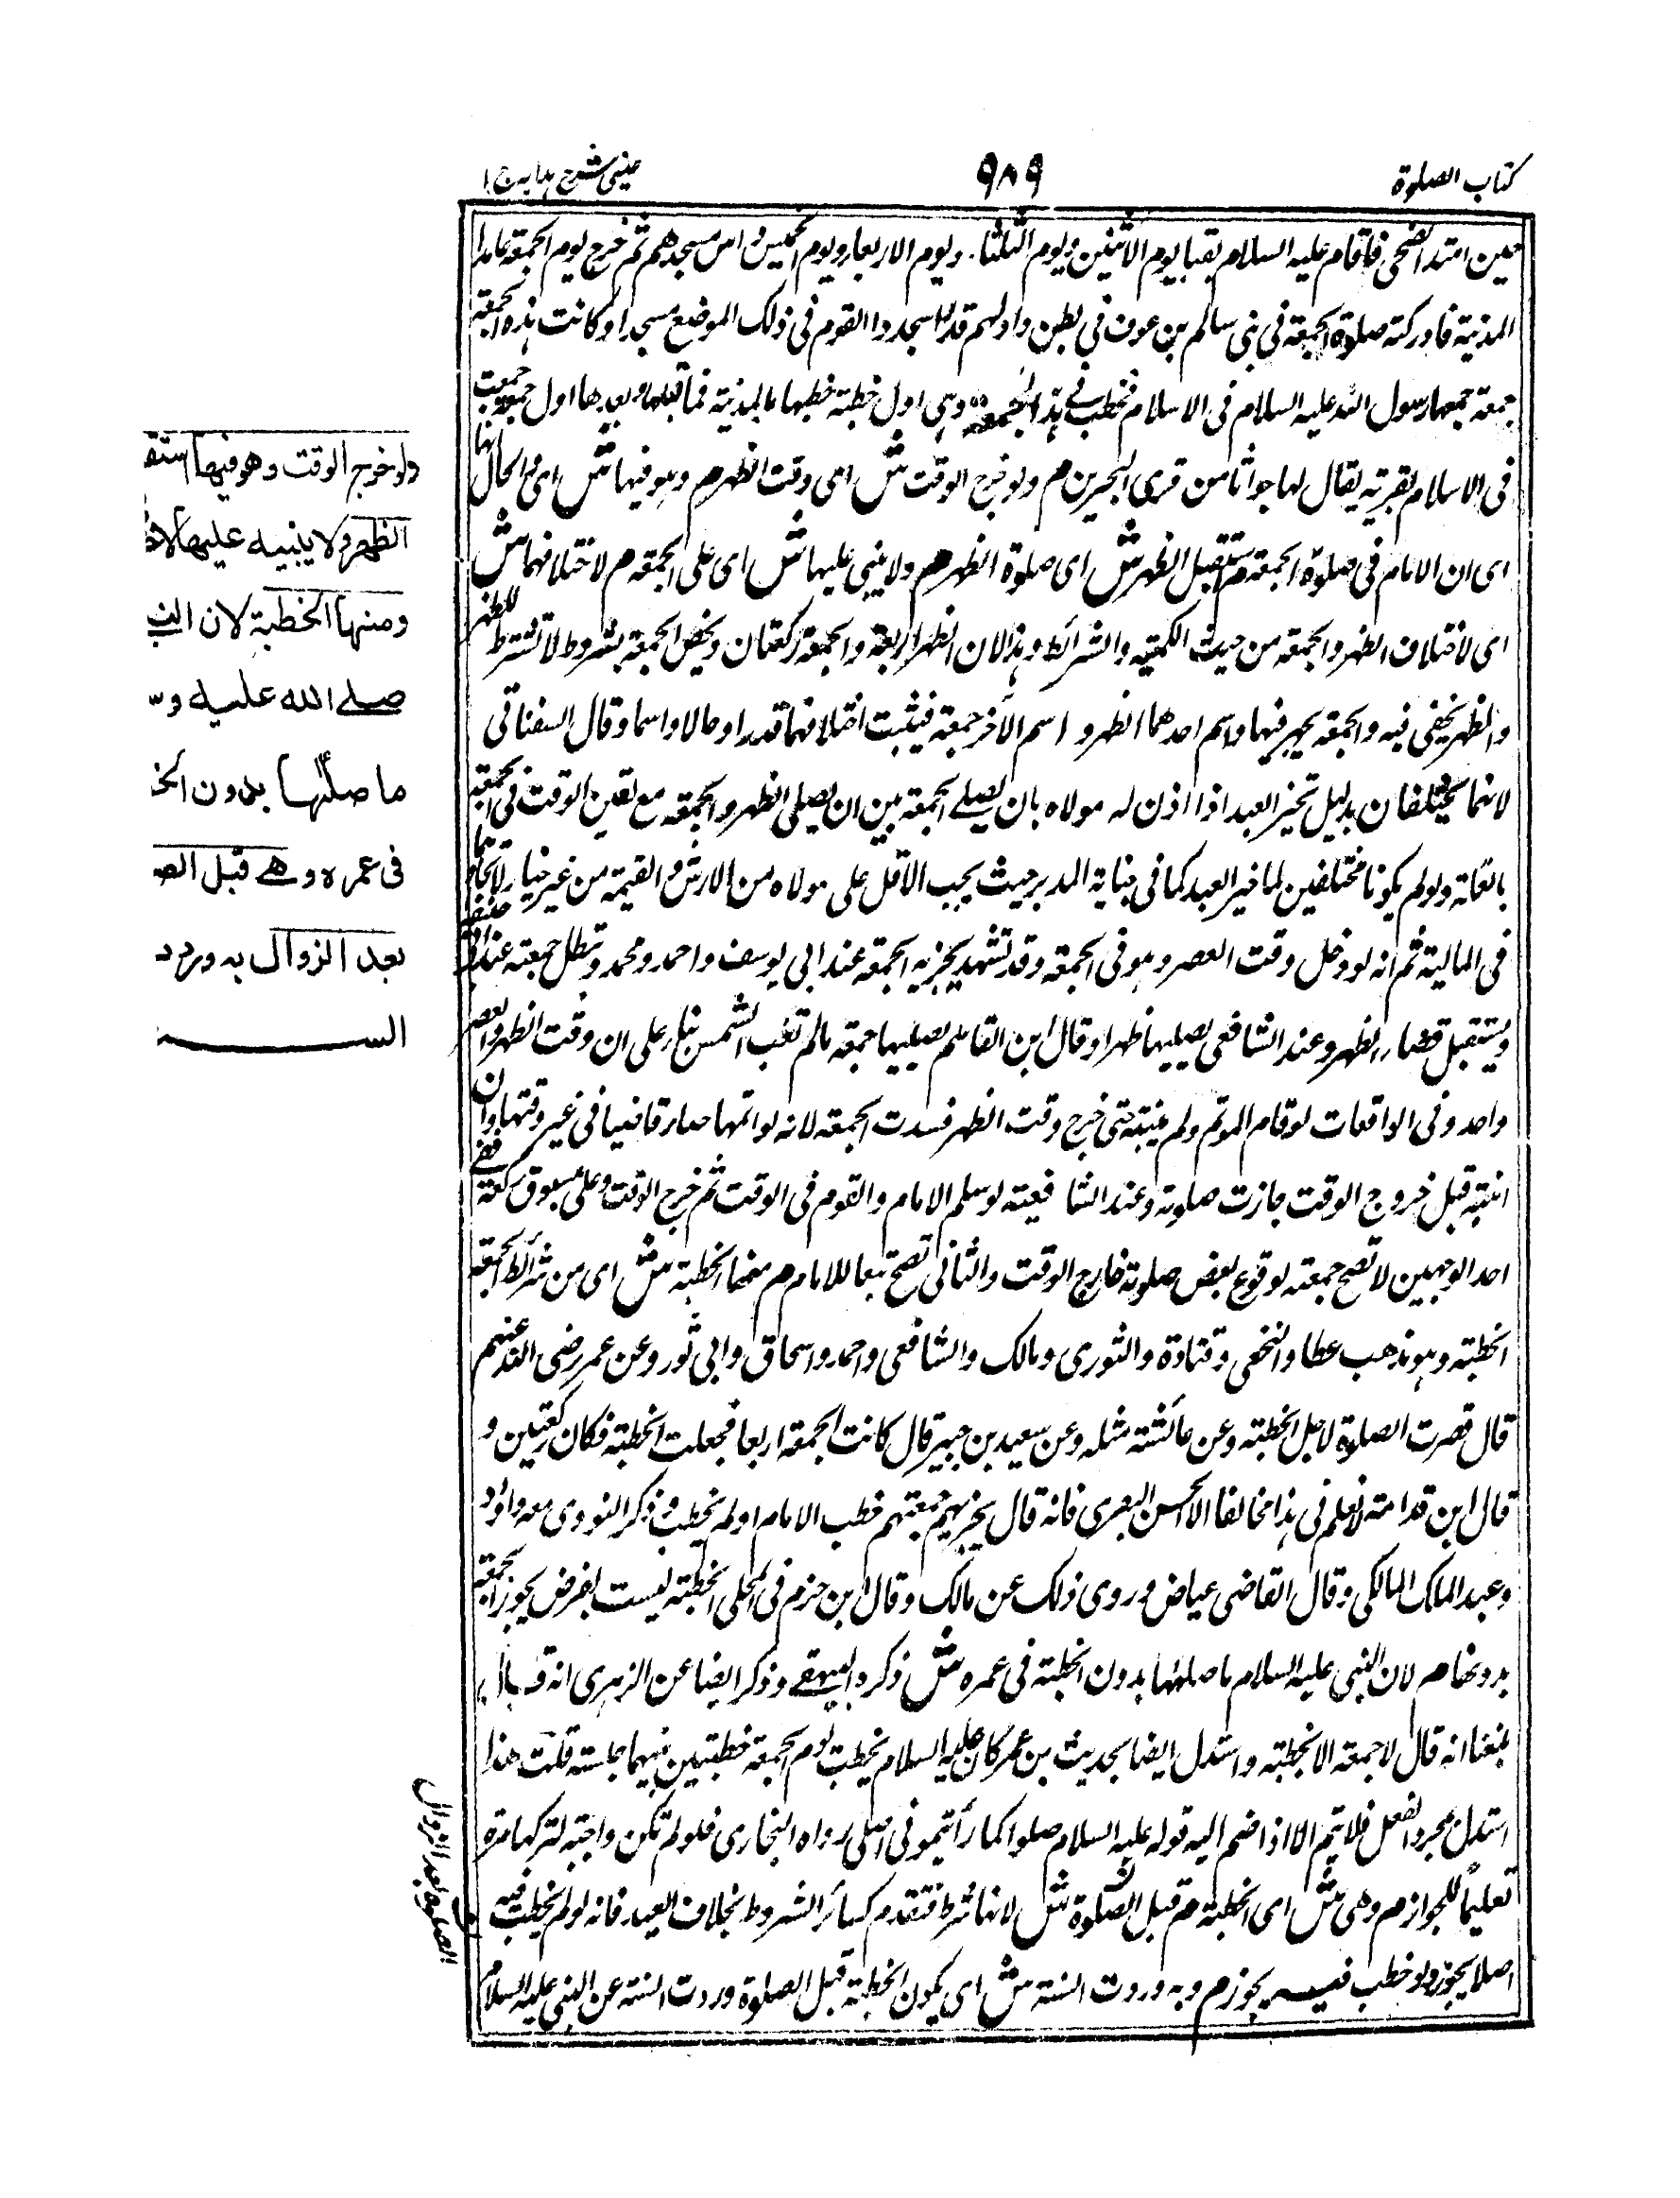 كتاب الصلوة
٩٨٩
عينى شرح هدايه ج ١
حين امتد الضحى فاقام عليه السلام بقبا يوم الاثنين ويوم الثلثا ويوم الاربعا ويوم الخميس واسس مسجدهم ثم خرج يوم الجمعة عامدا
المدينة فادركته صلوة الجمعة فى بنى سالم بن عوف فى بطن واد لهم قد اسجدوا القوم فى ذلك الموضع مسجدا وكانت هذه الجمعة
جمعة جمعها رسول الله عليه السلام فى الاسلام فخطب فى هذه الجمعة وهى اول خطبة خطبها بالمدينة فيما قيل وبعدها اول جمعة جمعت
فى الاسلام بقرية يقال لها جواثا من قرى البحرين م ولو خرج الوقت ش اى وقت الظهر م وهو فيها ش اى والحال انها
اى ان الامام فى صلوة الجمعة م استقبل الظهر ش اى صلوة الظهر م ولا يبنى عليها ش اى على الجمعة م لاختلافهما ش
اى لاختلاف الظهر والجمعة من حيث الكمية والشرائط وهذا لان الظهر اربعة والجمعة ركعتان ويخص الجمعة بشروط لا تشترط للظهر
والظهر يخفى فيه والجمعة يجهر فيها واسم احدهما الظهر و اسم الآخر جمعة فيثبت اختلافهما قدرا وحالا واسما وقال السفناقى
لانهما مختلفان بدليل تخير العبد اذا اذن له مولاه بان يصلے الجمعة بين ان يصلى الظهر والجمعة مع تعين الوقت فى الجمعة
بالقامة ولو لم يكونا مختلفين لما خير العبد كما فى جناية المدبر حيث يجب الاقل على مولاه من الارش والقيمة من غير خيار لاتحادهما
فى المالية ثم انه لو دخل وقت العصر وهو فى الجمعة وقد تشهد يجزيه الجمعة عند ابى يوسف واحمد ومحمد وتبطل جمعته عند ابى حنيفة
ويستقبل قضاء الظهر وعند الشافعى يصليها ظهرا وقال ابن القاسم يصليها جمعة مالم تغب الشمس بناء على ان وقت الظهر والعصر
واحد وفى الواقعات لو قام الموتم ولم ينتبه حتى خرج وقت الظهر فسدت الجمعة لانه لو اتمها صار قاضيا فى غير وقتها وان
انتبه قبل خروج الوقت جازت صلوته وعند الشافعية لو سلم الامام والقوم فى الوقت ثم خرج الوقت وعلى مسبوق ركعة ففى
احد الوجهين لا تصح جمعته لوقوع بعض صلوته خارج الوقت والثانى تصح تبعا للامام م ومنها الخطبة ش اى من شرائط الجمعة
الخطبة وهو مذهب عطا والنخعى وقتادة والثورى ومالك والشافعى واحمد واسحاق وابى ثور وعن عمر رضى الله عنهم
قال قصرت الصلوة لاجل الخطبة وعن عائشة مثله وعن سعيد بن جبير قال كانت الجمعة اربعا فجعلت الخطبة فكان ركعتين و
قال ابن قدامة لا نعلم فى هذا مخالفا الا الحسن البصرى فانه قال يجزيهم جمعتهم خطب الامام اولم يخطب وذكر النووى معه داؤد
وعبد الملك المالكى وقال القاضى عياض وروى ذلك عن مالك وقال ابن حزم فى المحلى الخطبة ليست بفرض يجوز الجمعة
بدونها م لان النبى عليه السلام ما صلهها بدون الخطبة فى عمره ش ذكره البيهقے وذكر ايضا عن الزهرى انه قال
بلغنا انه قال لا جمعة الا بخطبة واستدل ايضا بحديث بن عمر كان عليه السلام يخطب يوم الجمعة خطبتين بينهما جلسة قلت هذا
استدل بمجرد الفعل فلا يتم الا اذا ضم اليه قوله عليه السلام صلوا كما رأيتمونى اصلى رواه البخارى فلو لم تكن واجبة لتركها مرة
تعليما للجواز م وهى ش اى الخطبة م قبل الصلوة ش لانها شرط فتقدم كسائر الشروط بخلاف العيد فانه لو لم يخطب فيه
اصلا يجوز ولو خطب فيـــه يجوز م وبه وردت السنة ش اى يكون الخطبة قبل الصلوة وردت السنة عن النبى عليه السلام
ولو خرج الوقت وهو فيها استقـ
الظهر ولا يبنيه عليها لاخـ
ومنها الخطبة لان النبـ
صلے الله عليه وسـ
ما صلّها بدون الخـ
فى عمره وهے قبل الصـ
بعد الزوال به ورد
السـ
الصلوة بعد الزوال